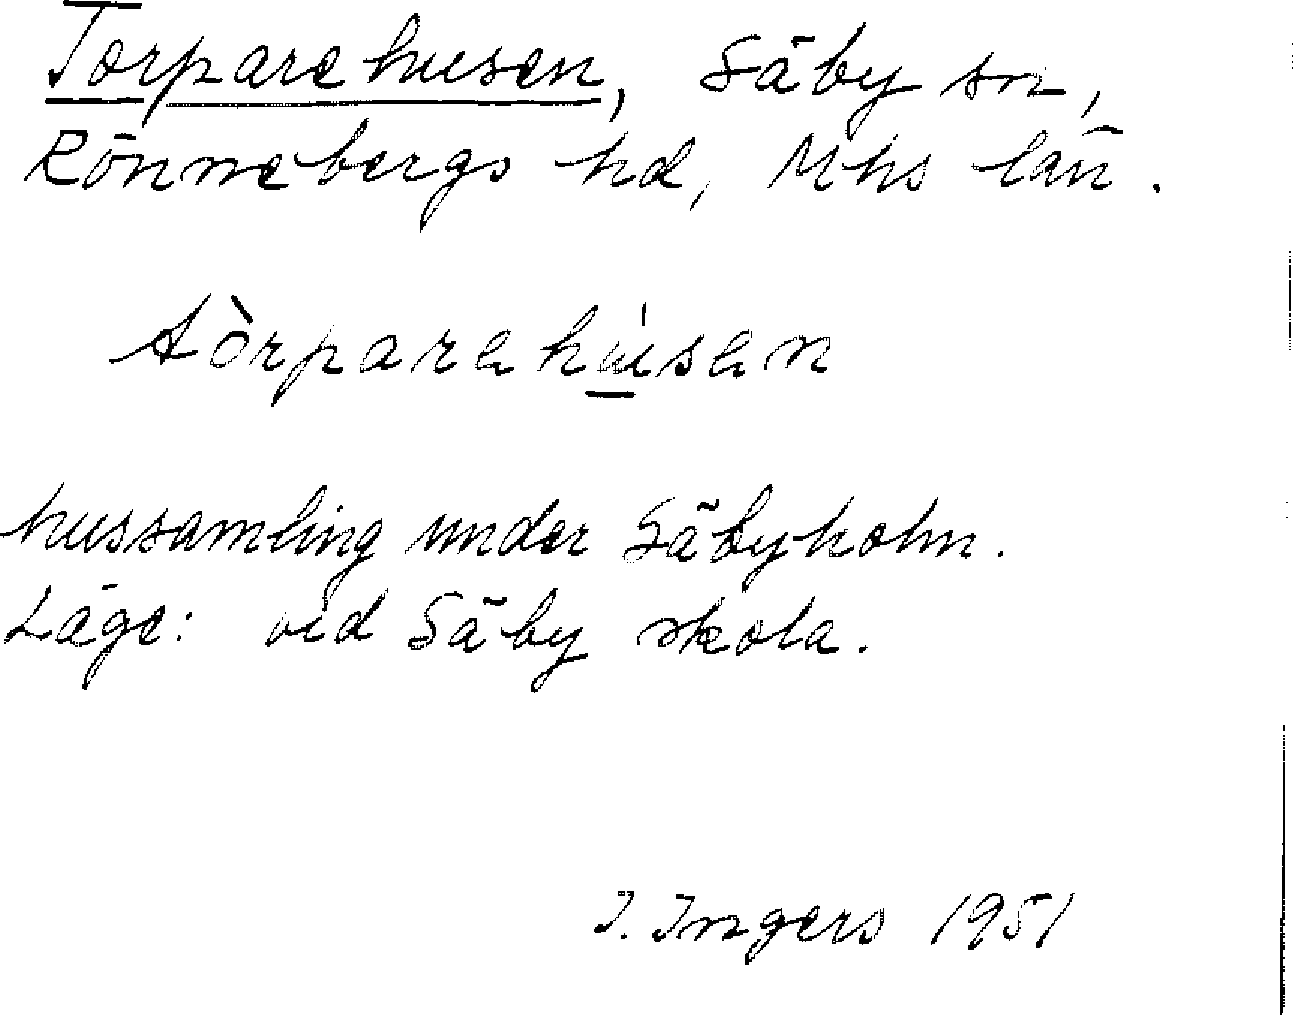 Torparehusen, Säby sn,
Rönnebergs hd, Mhs län.
tòrparehúsen
hussamling under Säbyholm.
Läge: vid Säby skola.
I. Ingers 1951